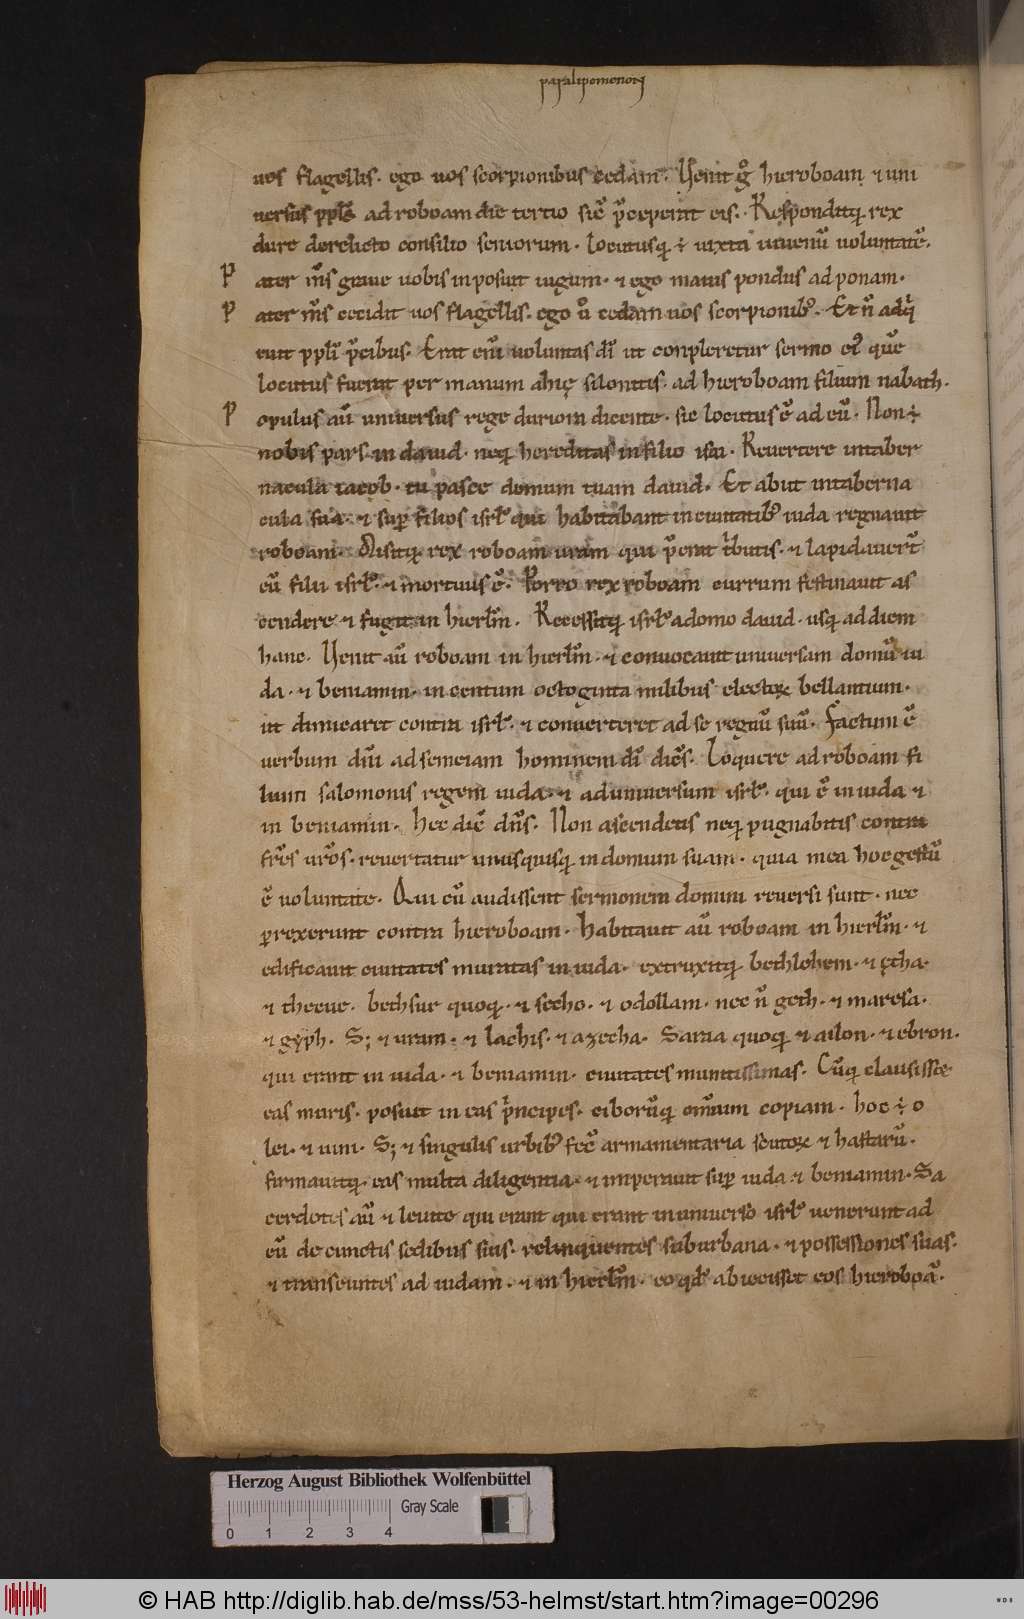 paralipomenon
uos flagellis. ego uos scorpionibus cedam. Uenit g̊ hieroboam ⁊ uni
uersus ppl̄s ad roboam die tertio sic̄ p̄ceperat eis. Responditq; rex
dure derelicto consilio seniorum. locutusq; ÷ iuxta iuuenū uoluntatē.
Pater m̄s graue uobis inposuit iugum. ⁊ ego maius pondus ad ponam.
Pater m̄s cecidit uos flagellis. ego ů cedam uos scorpionib;. Et n̄ adq̇
euit ppl̄i p̄cibus. Erat enī uoluntas dī ut conpleretur sermo ei; quē
locutus fuerat per manum ahię silonitis. ad hieroboam filium nabath.
Populus aū uniuersus rege duriora dicente. sic locutus ē ad eū. Non ÷
nobis pars in dauid. neq; hereditas in filio isai. Reuertere in taber
nacula iacob. tu pasce domum tuam dauid. Et abiit in taberna
cula sua. ⁊ sup filios isrl̄ qui habitabant in ciuitatib; iuda regnauit
roboam. Misitq; rex roboam uram qui p̄erat t̍butis. ⁊ lapidauert̄
eū filii isrl̄. ⁊ mortuus ē. Porro rex roboam currum festinauit as
cendere ⁊ fugit in hierl̄m. Recessitq; isrl̄ a domo dauid. usq; ad diem
hanc. Uenit aū roboam in hierl̄m. ⁊ conuocauit uniuersam domū iu
da. ⁊ beniamin. in centum octoginta milibus electoꝝ bellantium.
ut dimicaret contra isrl̄. ⁊ conuerteret ad se regnū suū. Factum ē
uerbum dn̄i ad semeiam hominem dī dic̄s. Loquere ad roboam fi
lium salomonis regem iuda. ⁊ ad uniuersum isrl̄. qui ē in iuda ⁊
in beniamin. Hec dic̄ dn̄s. Non ascendetis neq; pugnabitis contra
fr̄es ur̄os. reuertatur unusquisq; in domum suam. quia mea hoc gestū
ē uoluntate. Qui cū audissent sermonem domini reuersi sunt. nec
perrexerunt contra hieroboam. Habitauit aū roboam in hierl̄m. ⁊
edificauit ciuitates muratas in iuda. extruxitq; bethlehem. ⁊ ętha.
⁊ thecue. bethsur quoq;. ⁊ socho. ⁊ odollam. nec n̄ geth. ⁊ maresa.
⁊ gyph. S; ⁊ uram. ⁊ lachis. ⁊ azecha. Saraa quoq; ⁊ ailon. ⁊ ebron.
qui erant in iuda. ⁊ beniamin. ciuitates munitissimas. Cūq; clausisset
eas muris. posuit in eas p̍ncipes. ciborūq; omnium copiam. hoc ÷ o
lei. ⁊ uini. S; ⁊ singulis urbib; fec̄ armamentaria scutoꝝ ⁊ hastarū.
firmauitq; eas multa diligentia. ⁊ imperauit sup iuda ⁊ beniamin. Sa
cerdotes aū ⁊ leuite qui erant qui erant in uniuerso isrl̄ uenerunt ad
eū de cunctis sedibus suis. relinquentes suburbana. ⁊ possessiones suas.
⁊ transeuntes ad iudam. ⁊ in hierl̄m. eo qd̄ abiecisset eos hieroboā.
Herzog August Bibliothek Wolfenbüttel
Gray Scale
0 1 2 3 4
© HAB http://diglib.hab.de/mss/53-helmst/start.htm?image=00296